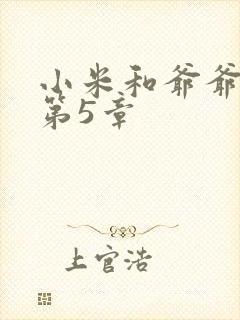 小米和爷爷
第5章
上官浩